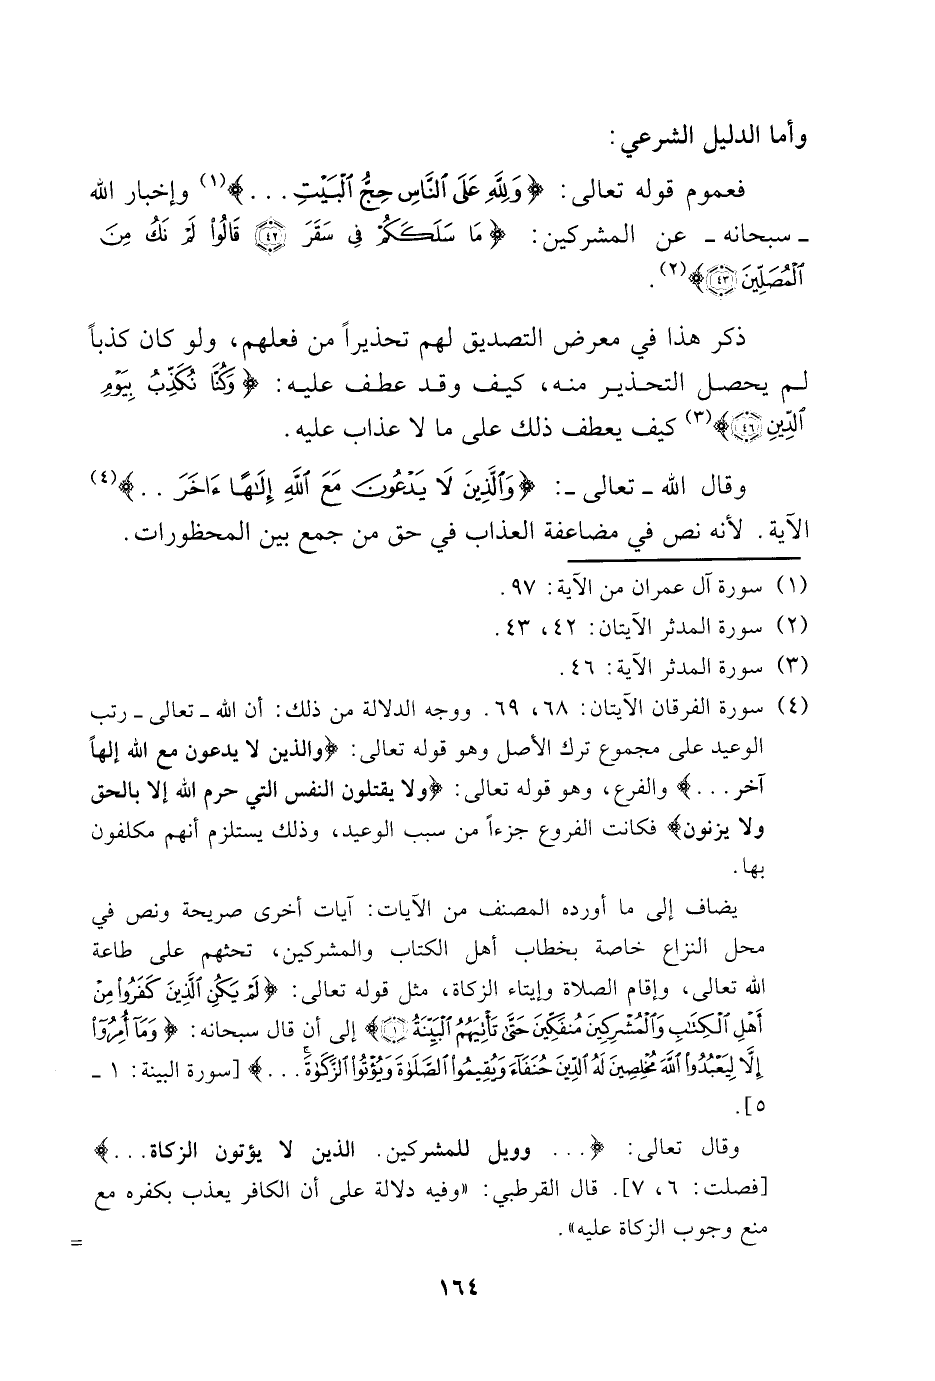 وأما الدليل الشرعي :
فعموم قوله تعالى: ﴿ وَلِلَّهِ عَلَى ٱلنَّاسِ حِجُّ ٱلْبَيْتِ . . . ﴾(١) وإخبار الله
ـ سبحانه ـ عن المشركين: ﴿ مَا سَلَكَكُمْ فِي سَقَرَ ۝٤٢ قَالُوا۟ لَمْ نَكُ مِنَ
ٱلْمُصَلِّينَ ۝٤٣ ﴾(٢).
ذكر هذا في معرض التصديق لهم تحذيراً من فعلهم، ولو كان كذباً
لم يحصل التحذير منه، كيف وقد عطف عليه: ﴿ وَكُنَّا نُكَذِّبُ بِيَوْمِ
ٱلدِّينِ ۝٤٦ ﴾(٣) كيف يعطف ذلك على ما لا عذاب عليه.
وقال الله ـ تعالى ـ: ﴿ وَٱلَّذِينَ لَا يَدْعُونَ مَعَ ٱللَّهِ إِلَٰهًا ءَاخَرَ . . . ﴾(٤)
الآية. لأنه نص في مضاعفة العذاب في حق من جمع بين المحظورات.
(١) سورة آل عمران من الآية: ٩٧.
(٢) سورة المدثر الآيتان: ٤٢، ٤٣.
(٣) سورة المدثر الآية: ٤٦.
(٤) سورة الفرقان الآيتان: ٦٨، ٦٩. ووجه الدلالة من ذلك: أن الله ـ تعالى ـ رتب
الوعيد على مجموع ترك الأصل وهو قوله تعالى: ﴿والذين لا يدعون مع الله إلهاً
آخر . . . ﴾ والفرع، وهو قوله تعالى: ﴿ولا يقتلون النفس التي حرم الله إلا بالحق
ولا يزنون﴾ فكانت الفروع جزءاً من سبب الوعيد، وذلك يستلزم أنهم مكلفون
بها.
يضاف إلى ما أورده المصنف من الآيات: آيات أخرى صريحة ونص في
محل النزاع خاصة بخطاب أهل الكتاب والمشركين، تحثهم على طاعة
الله تعالى، وإقام الصلاة وإيتاء الزكاة، مثل قوله تعالى: ﴿ لَمْ يَكُنِ ٱلَّذِينَ كَفَرُوا۟ مِنْ
أَهْلِ ٱلْكِتَٰبِ وَٱلْمُشْرِكِينَ مُنفَكِّينَ حَتَّىٰ تَأْتِيَهُمُ ٱلْبَيِّنَةُ ۝١ ﴾ إلى أن قال سبحانه: ﴿ وَمَآ أُمِرُوٓا۟
إِلَّا لِيَعْبُدُوا۟ ٱللَّهَ مُخْلِصِينَ لَهُ ٱلدِّينَ حُنَفَآءَ وَيُقِيمُوا۟ ٱلصَّلَوٰةَ وَيُؤْتُوا۟ ٱلزَّكَوٰةَ ۚ . . . ﴾ [سورة البينة: ١ ـ
٥].
وقال تعالى: ﴿ . . . وويل للمشركين. الذين لا يؤتون الزكاة . . . ﴾
[فصلت: ٦، ٧]. قال القرطبي: «وفيه دلالة على أن الكافر يعذب بكفره مع
منع وجوب الزكاة عليه».
=
١٦٤